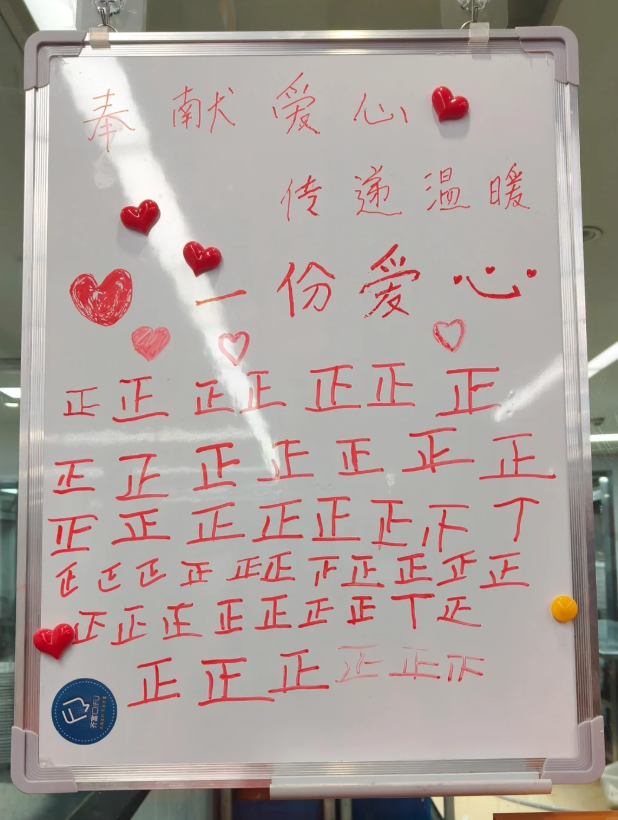 奉献爱心
传递温暖
一份爱心
正正正正正正正
正正正正正正正
正正正正正正下丅
正正正正正正正正正正正
正正正正正正正丅正
正正正正正下
齐富QIFU